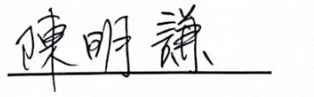 陳明謙